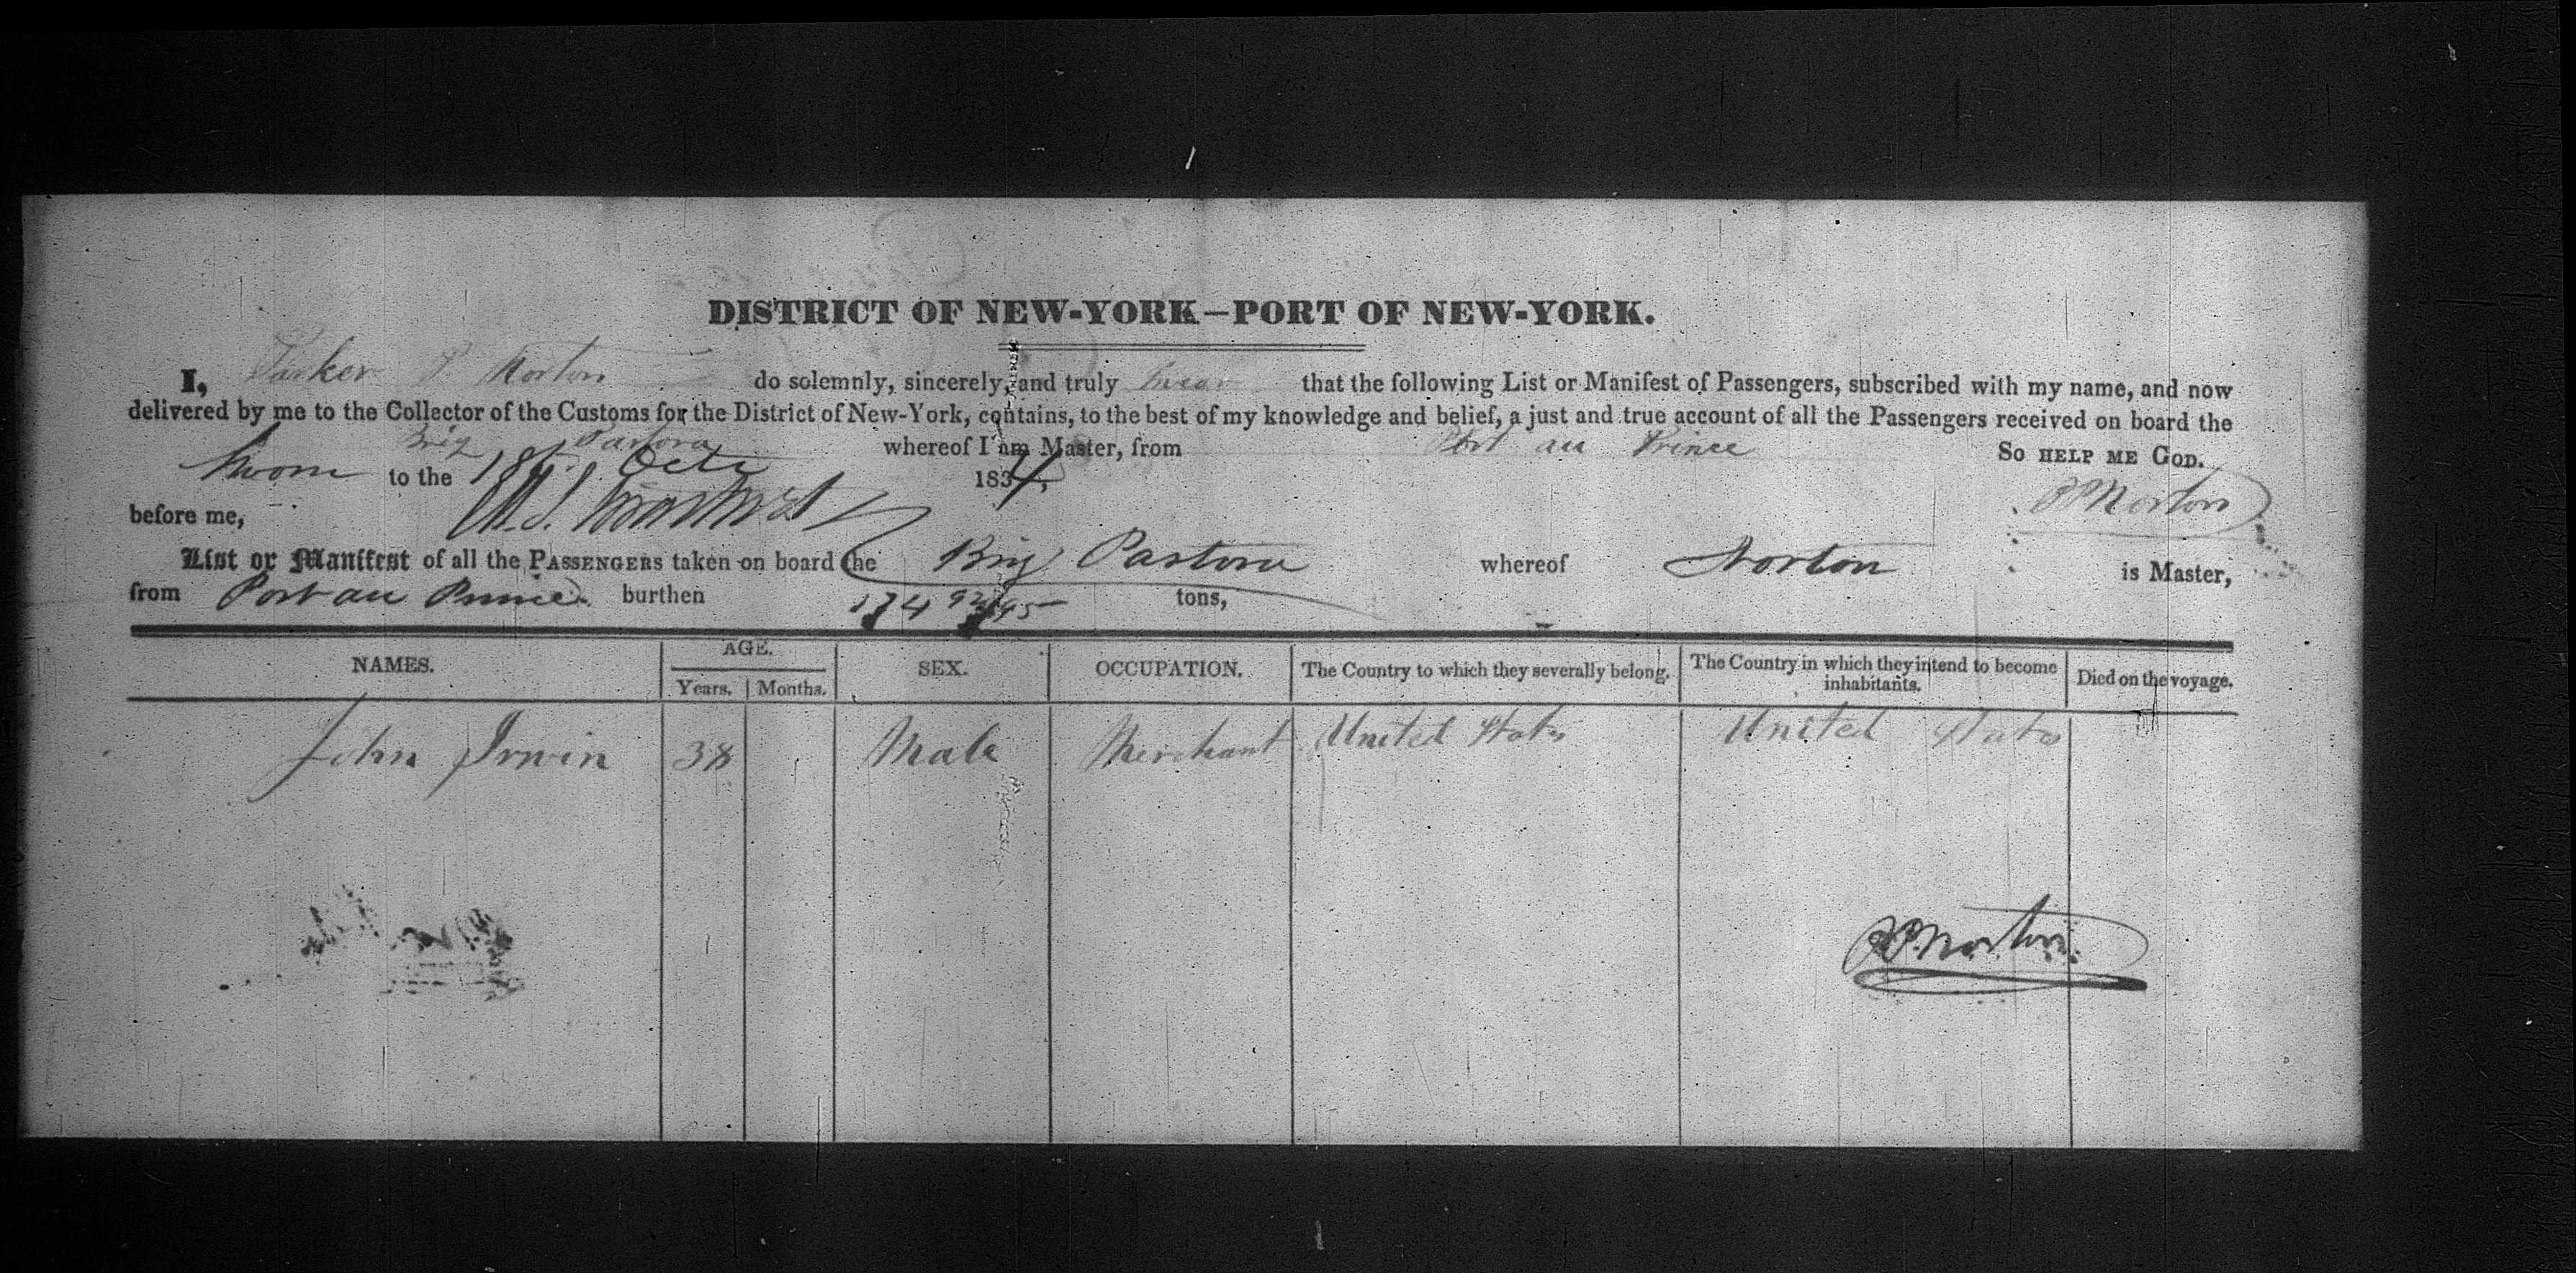 DISTRICT OF NEW-YORK—PORT OF NEW-YORK.
I, Parker P. Norton do solemnly, sincerely, and truly swear that the following List or Manifest of Passengers, subscribed with my name, and now
delivered by me to the Collector of the Customs for the District of New-York, contains, to the best of my knowledge and belief, a just and true account of all the Passengers received on board the
Brig Pastora whereof I am Master, from Port au Prince So HELP ME GOD.
Sworn to the 1st Octr 1834,
before me, P P Norton
List or Manifest of all the PASSENGERS taken on board the Brig Pastora whereof Norton is Master,
from Port au Prince burthen 174 92/95 tons,
NAMES. AGE. Years. Months. SEX. OCCUPATION. The Country to which they severally belong. The Country in which they intend to become inhabitants. Died on the voyage.
John Irwin 38 Male Merchant United States United States
P P Norton